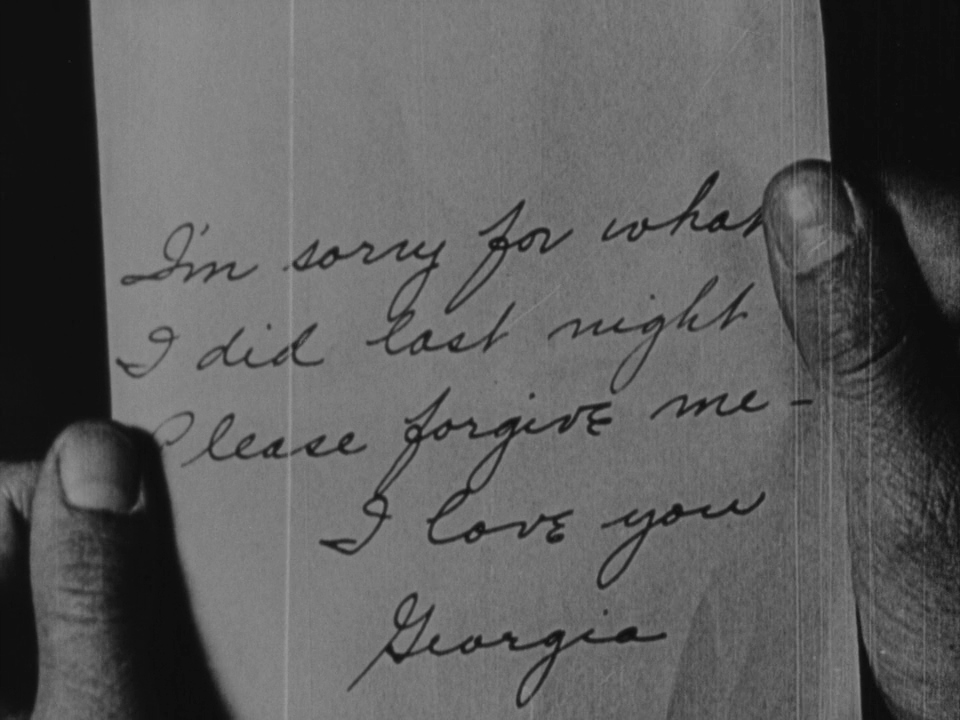 I'm sorry for what
I did last night
Please forgive me -
I love you
Georgia